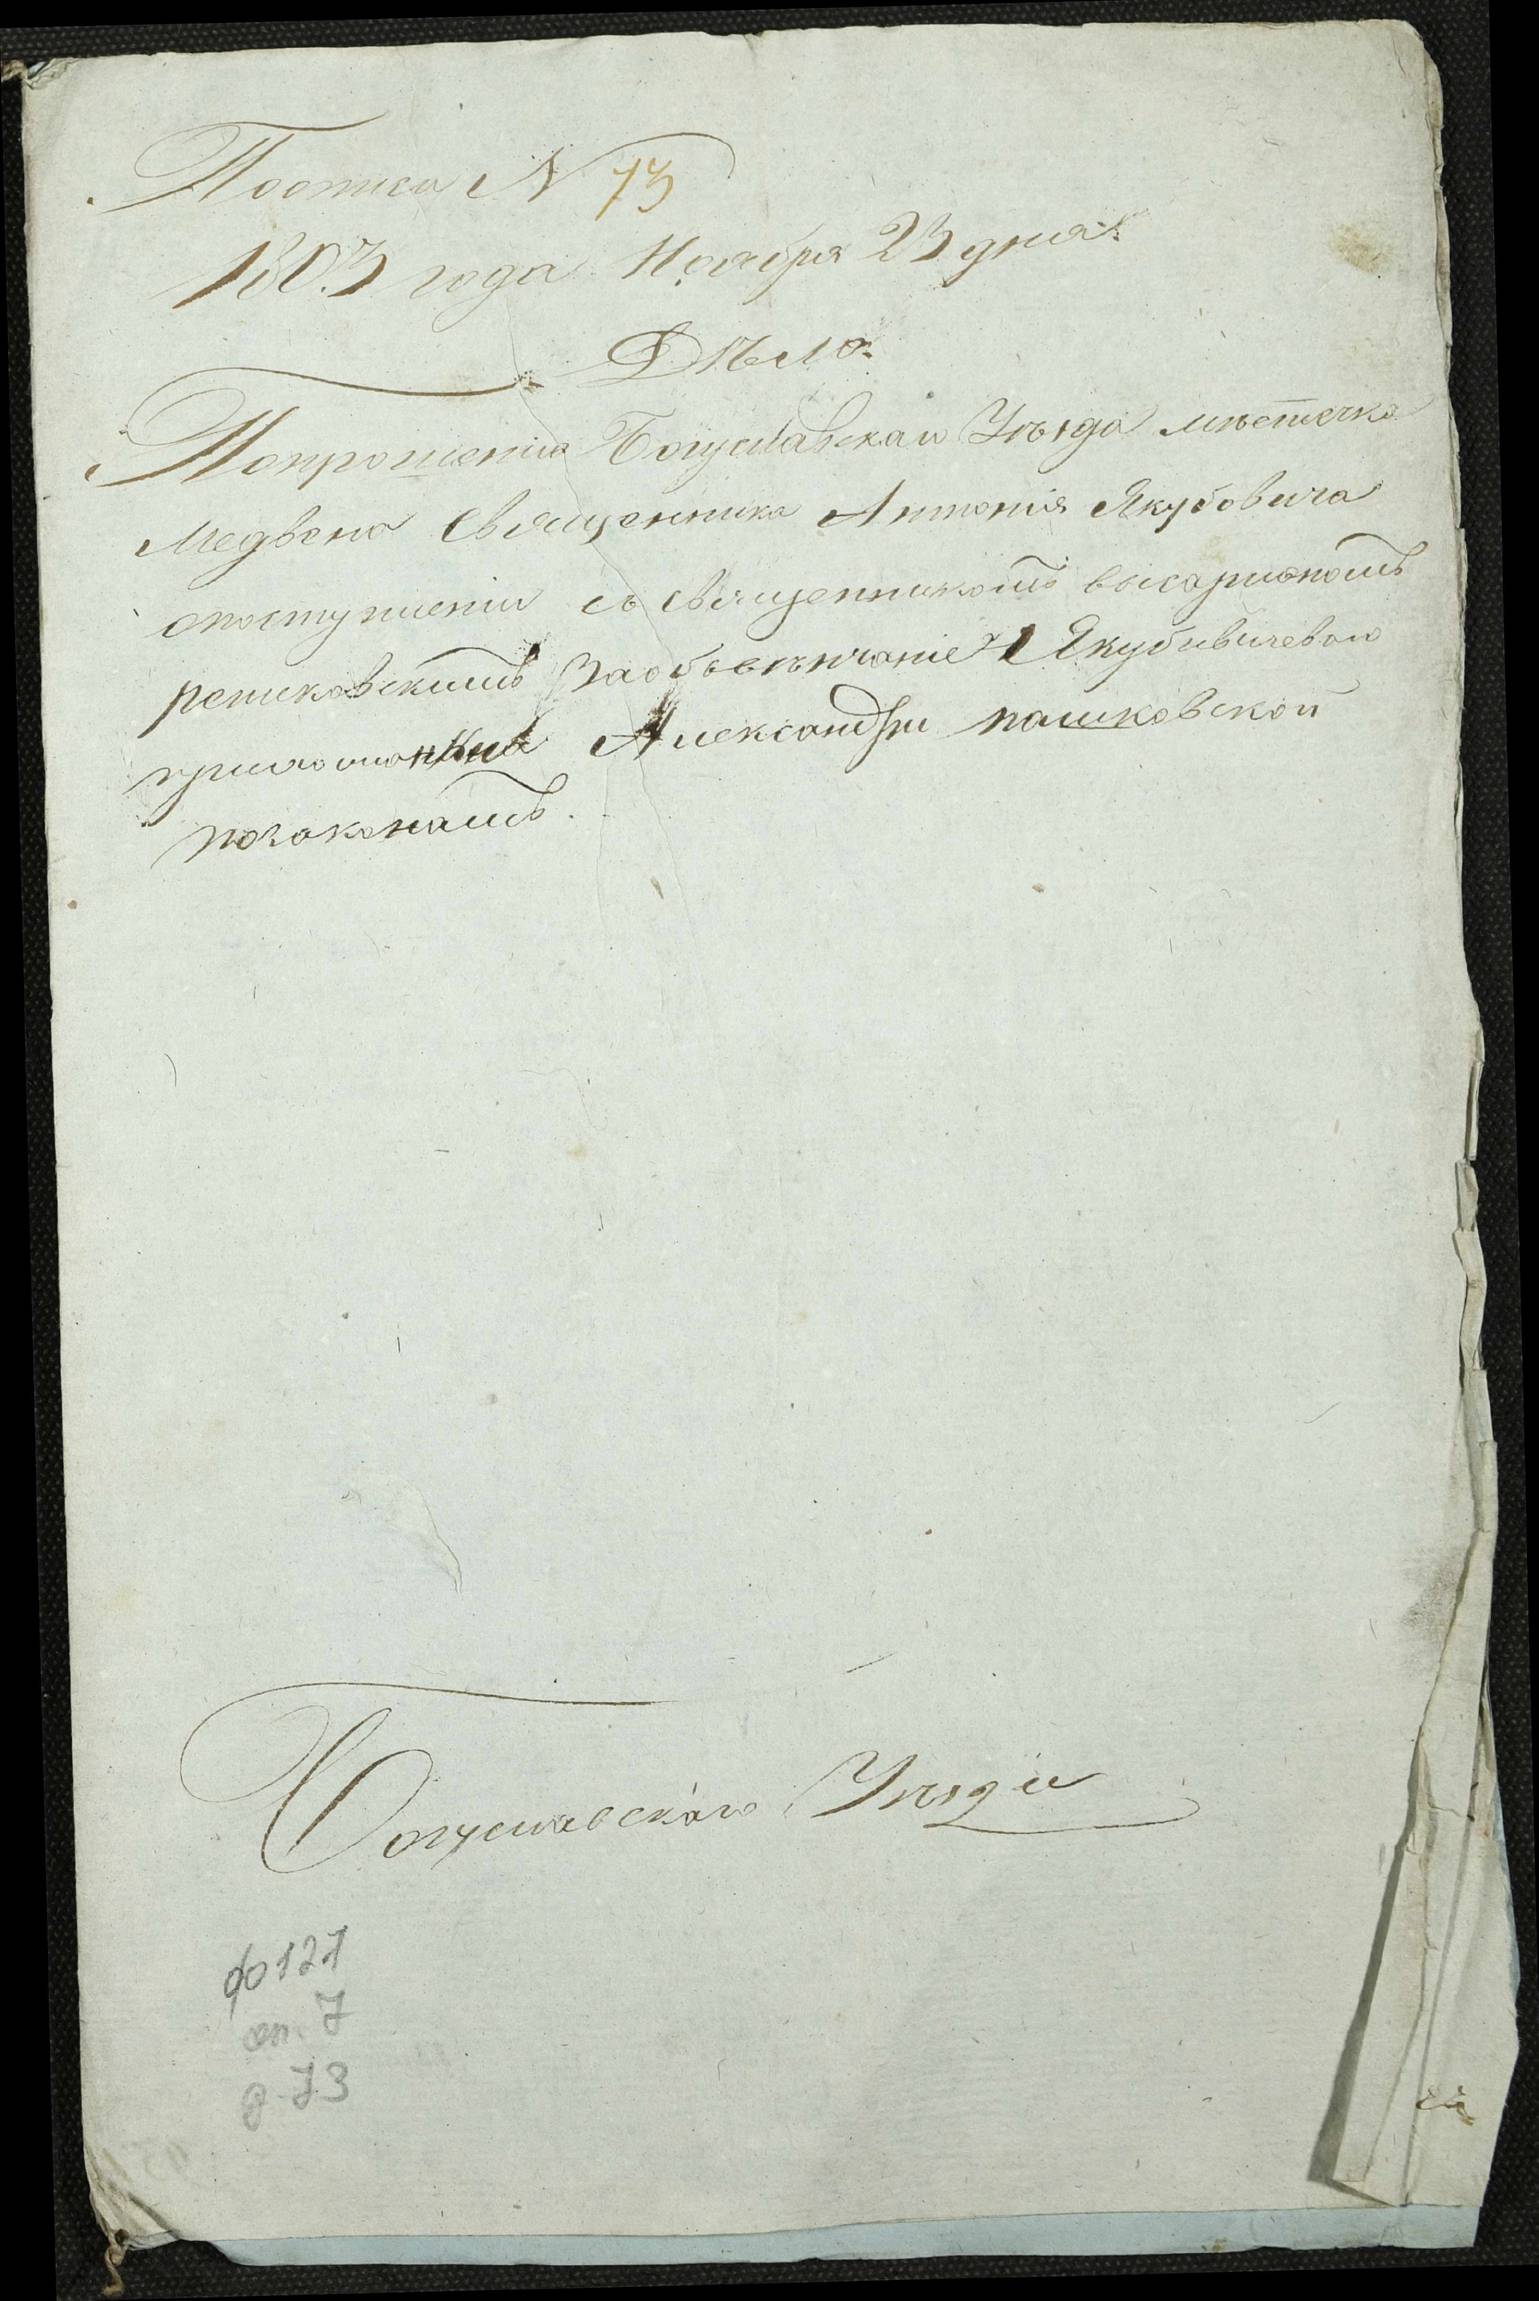 Поописи N 73
1803 года Ноября 23 дня.
Дѣло
Попрошенію Богуславскаго Уѣзда мѣстечка
Медвена Священника Антонія Якубовича
опоступленіи съ священникомъ висаріономъ
репиковскимъ Заобвѣнчаніе Якубовичевою
прихожанки Александри пашковской
позаконамъ.
Богуславскаго Уѣзда
ф 127
оп. 7
д. 73